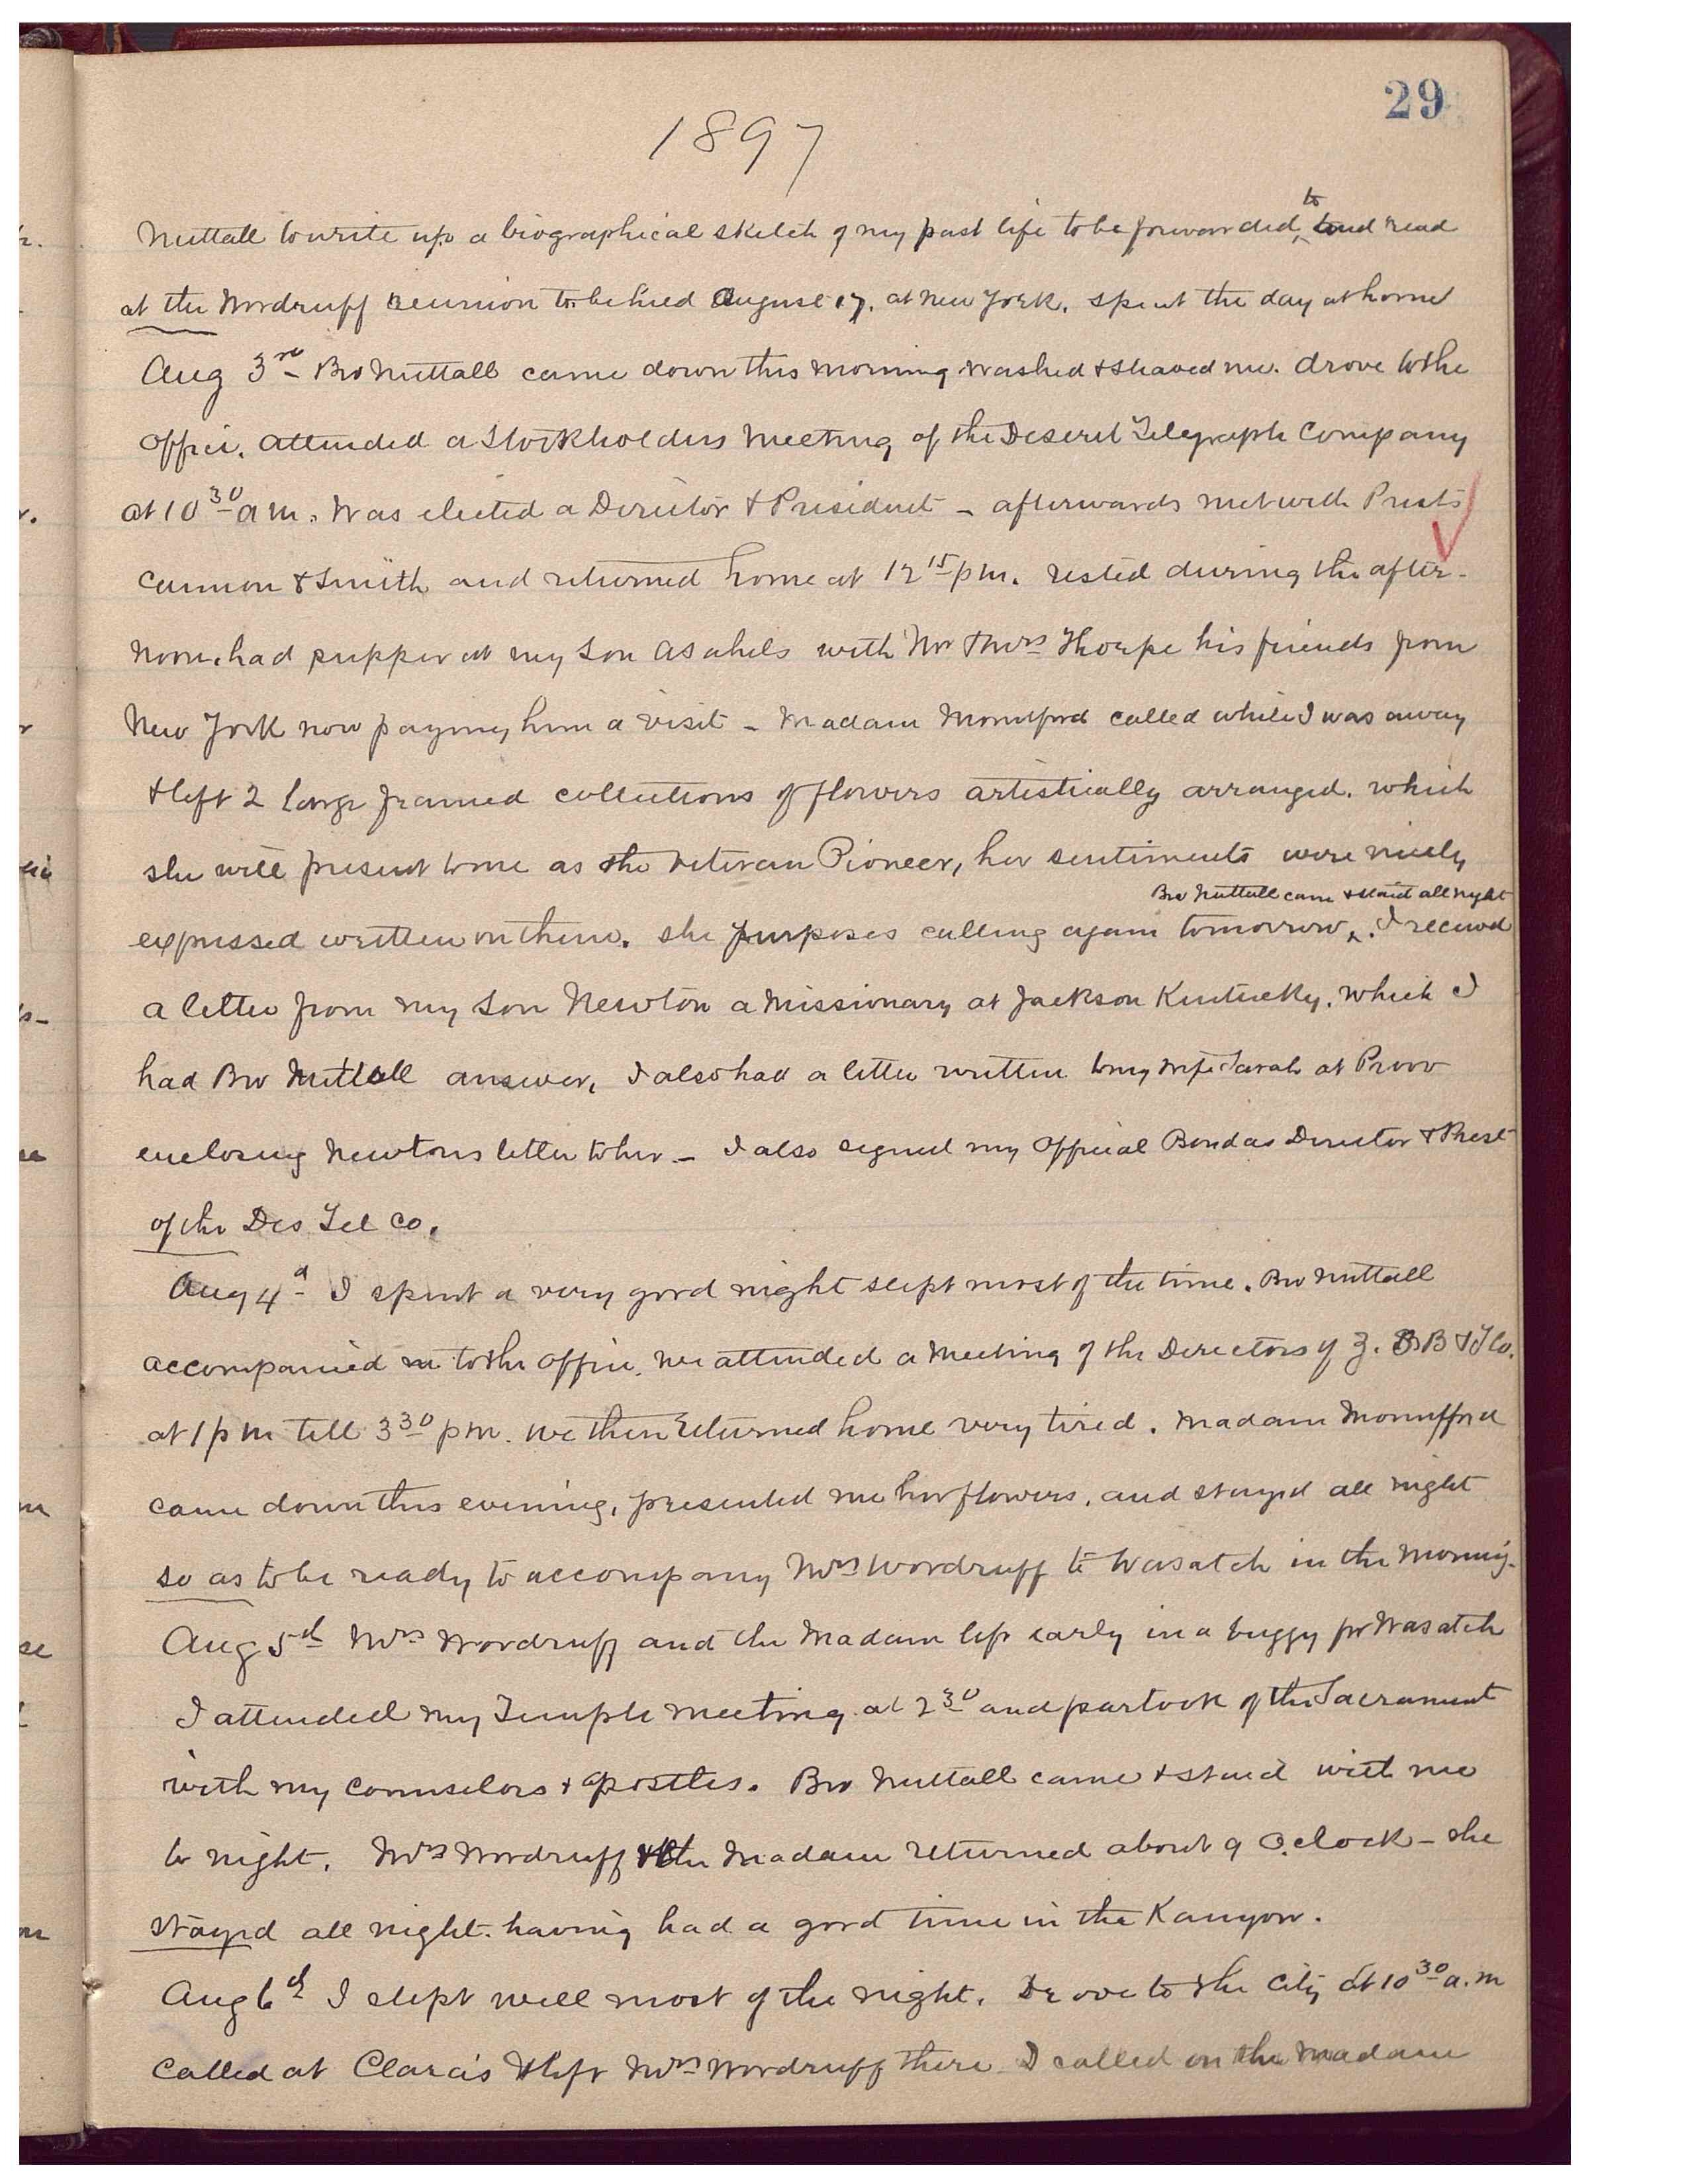 29
1897
Nuttall to write up a biographical sketch of my past life to be forwarded ^to^ and read
at the Woodruff Reunion to be hied August 17. at New York. Spent the day at home
Aug 3rd Bro Nuttall came down this morning washed & shaved me. drove to the
office. attended a Stockholders Meeting of the Deseret Telegraph Company
at 10 30 am. Was elected a Director & President – afterwards met with Prests
Cannon & Smith and returned home at 12 15 pm. rested during the after-
noon. had supper at my Son Asahels with Mr & Mrs Thorpe his friends from
New York now paying him a visit – Madam Mountford called while I was away
& left 2 large framed collections of flowers artistically arranged. which
she will present to me as the veteran Pioneer, her sentiments were nicely
Bro Nuttall came & staid all night
expressed written on them. she purposes calling again tomorrow^. I received
a letter from my Son Newton a Missionary at Jackson Kentucky. which I
had Bro Nuttall answer, I also had a letter written to my wife Sarah at Provo
enclosing Newtons letter to her – I also signed my Official Bond as Director & Prest
of the Des Tel Co.
Aug 4th I spent a very good night slept most of the time. Bro Nuttall
accompanied me to the office. we attended a Meeting of the Directors of Z. S B & T Co.
at 1 pm till 3 30 pm. we then returned home very tired. Madam Mountford
came down this evening, presented me her flowers, and stayed all night
so as to be ready to accompany Mrs Woodruff to Wasatch in the morning-
Aug 5th Mrs Woodruff and the Madam left early in a buggy for Wasatch
I attended my Temple meeting at 2 30 and partook of the Sacrament
with my Counselors & apostles. Bro Nuttall came & staid with me
to night. Mrs Woodruff & the Madam returned about 9 O.clock – she
stayed all night. having had a good time in the Kanyon.
Aug 6th I slept well most of the night. Drove to the City at 10 30 a.m
Called at Clara's & left Mrs Woodruff there I called on the Madam